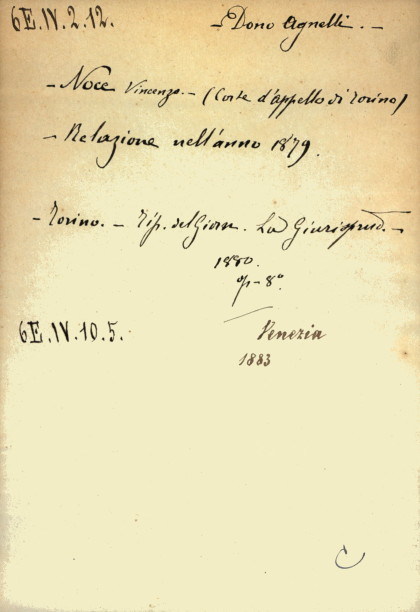 6E.IV.2.12. - Dono Agnelli. -
- Noce Vincenzo. - (Corte d'appello di Torino)
- Relazione nell'anno 1879.
- Torino. - Tip. del Giorn. La Giurisprud. -
1880.
op - 8°.
6E.IV.10.5. Venezia
1883
C